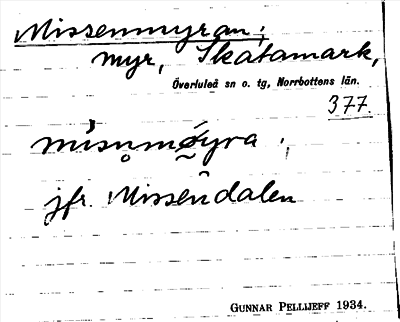 Missenmyran;
myr, Skatamark,
Överluleå sn o. tg, Norrbottens län.
377.
jfr. Missendalen
GUNNAR PELLIJEFF 1934.